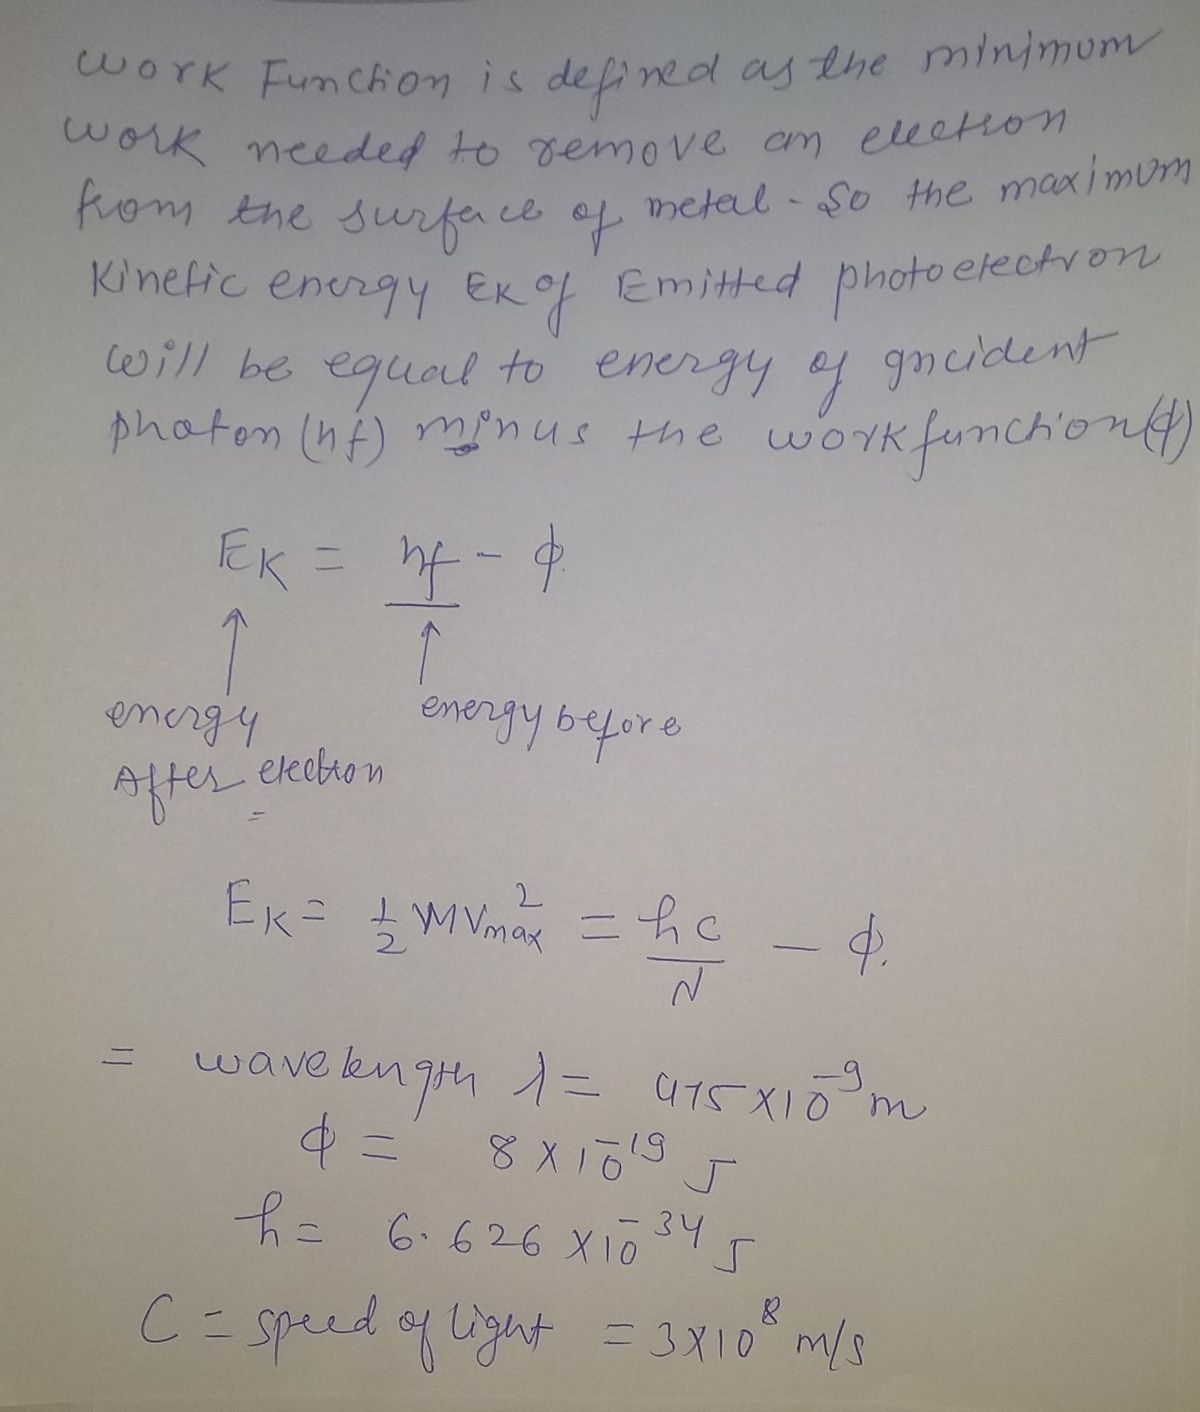 Work Function is defined as the minimum
work needed to remove an electron
from the surface of metal. So the maximum
Kinetic energy EK of Emitted photoelectron
will be equal to energy of incident
photon (hf) minus the work function (ϕ)
EK = hf - ϕ
energy energy before
After electron
=
EK = 1/2 MVmax² = hc/λ - ϕ.
= wavelength λ = 475 × 10⁻⁹ m
ϕ = 8 × 10⁻¹⁹ J
h = 6.626 × 10⁻³⁴ J
C = speed of light = 3×10⁸ m/s